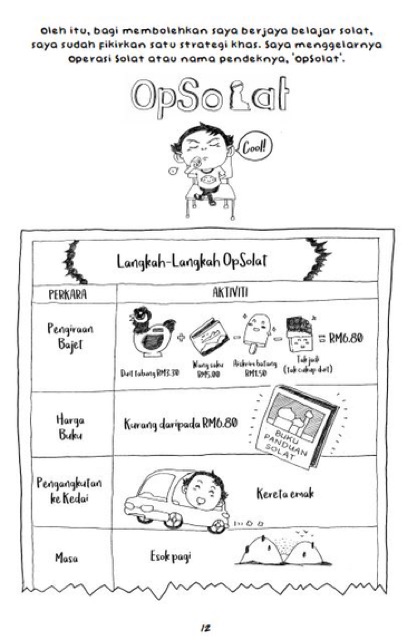 Oleh itu, bagi membolehkan saya berjaya belajar solat,
saya sudah fikirkan satu strategi khas. Saya menggelarnya
Operasi Solat atau nama pendeknya, 'OpSolat'.
OpSoLat
Cool!
Langkah-Langkah OpSolat
PERKARA AKTIVITI
Pengiraan
Bajet
+ - - = RM6.80
Duit tabung RM3.30
Wang saku
RM5.00
Aiskrim batang
RM1.50
Tak jadi
(tak cukup duit)
Harga
Buku
Kurang daripada RM6.80
BUKU
PANDUAN
SOLAT
Pengangkutan
ke Kedai
Kereta emak
Masa
Esok pagi
12